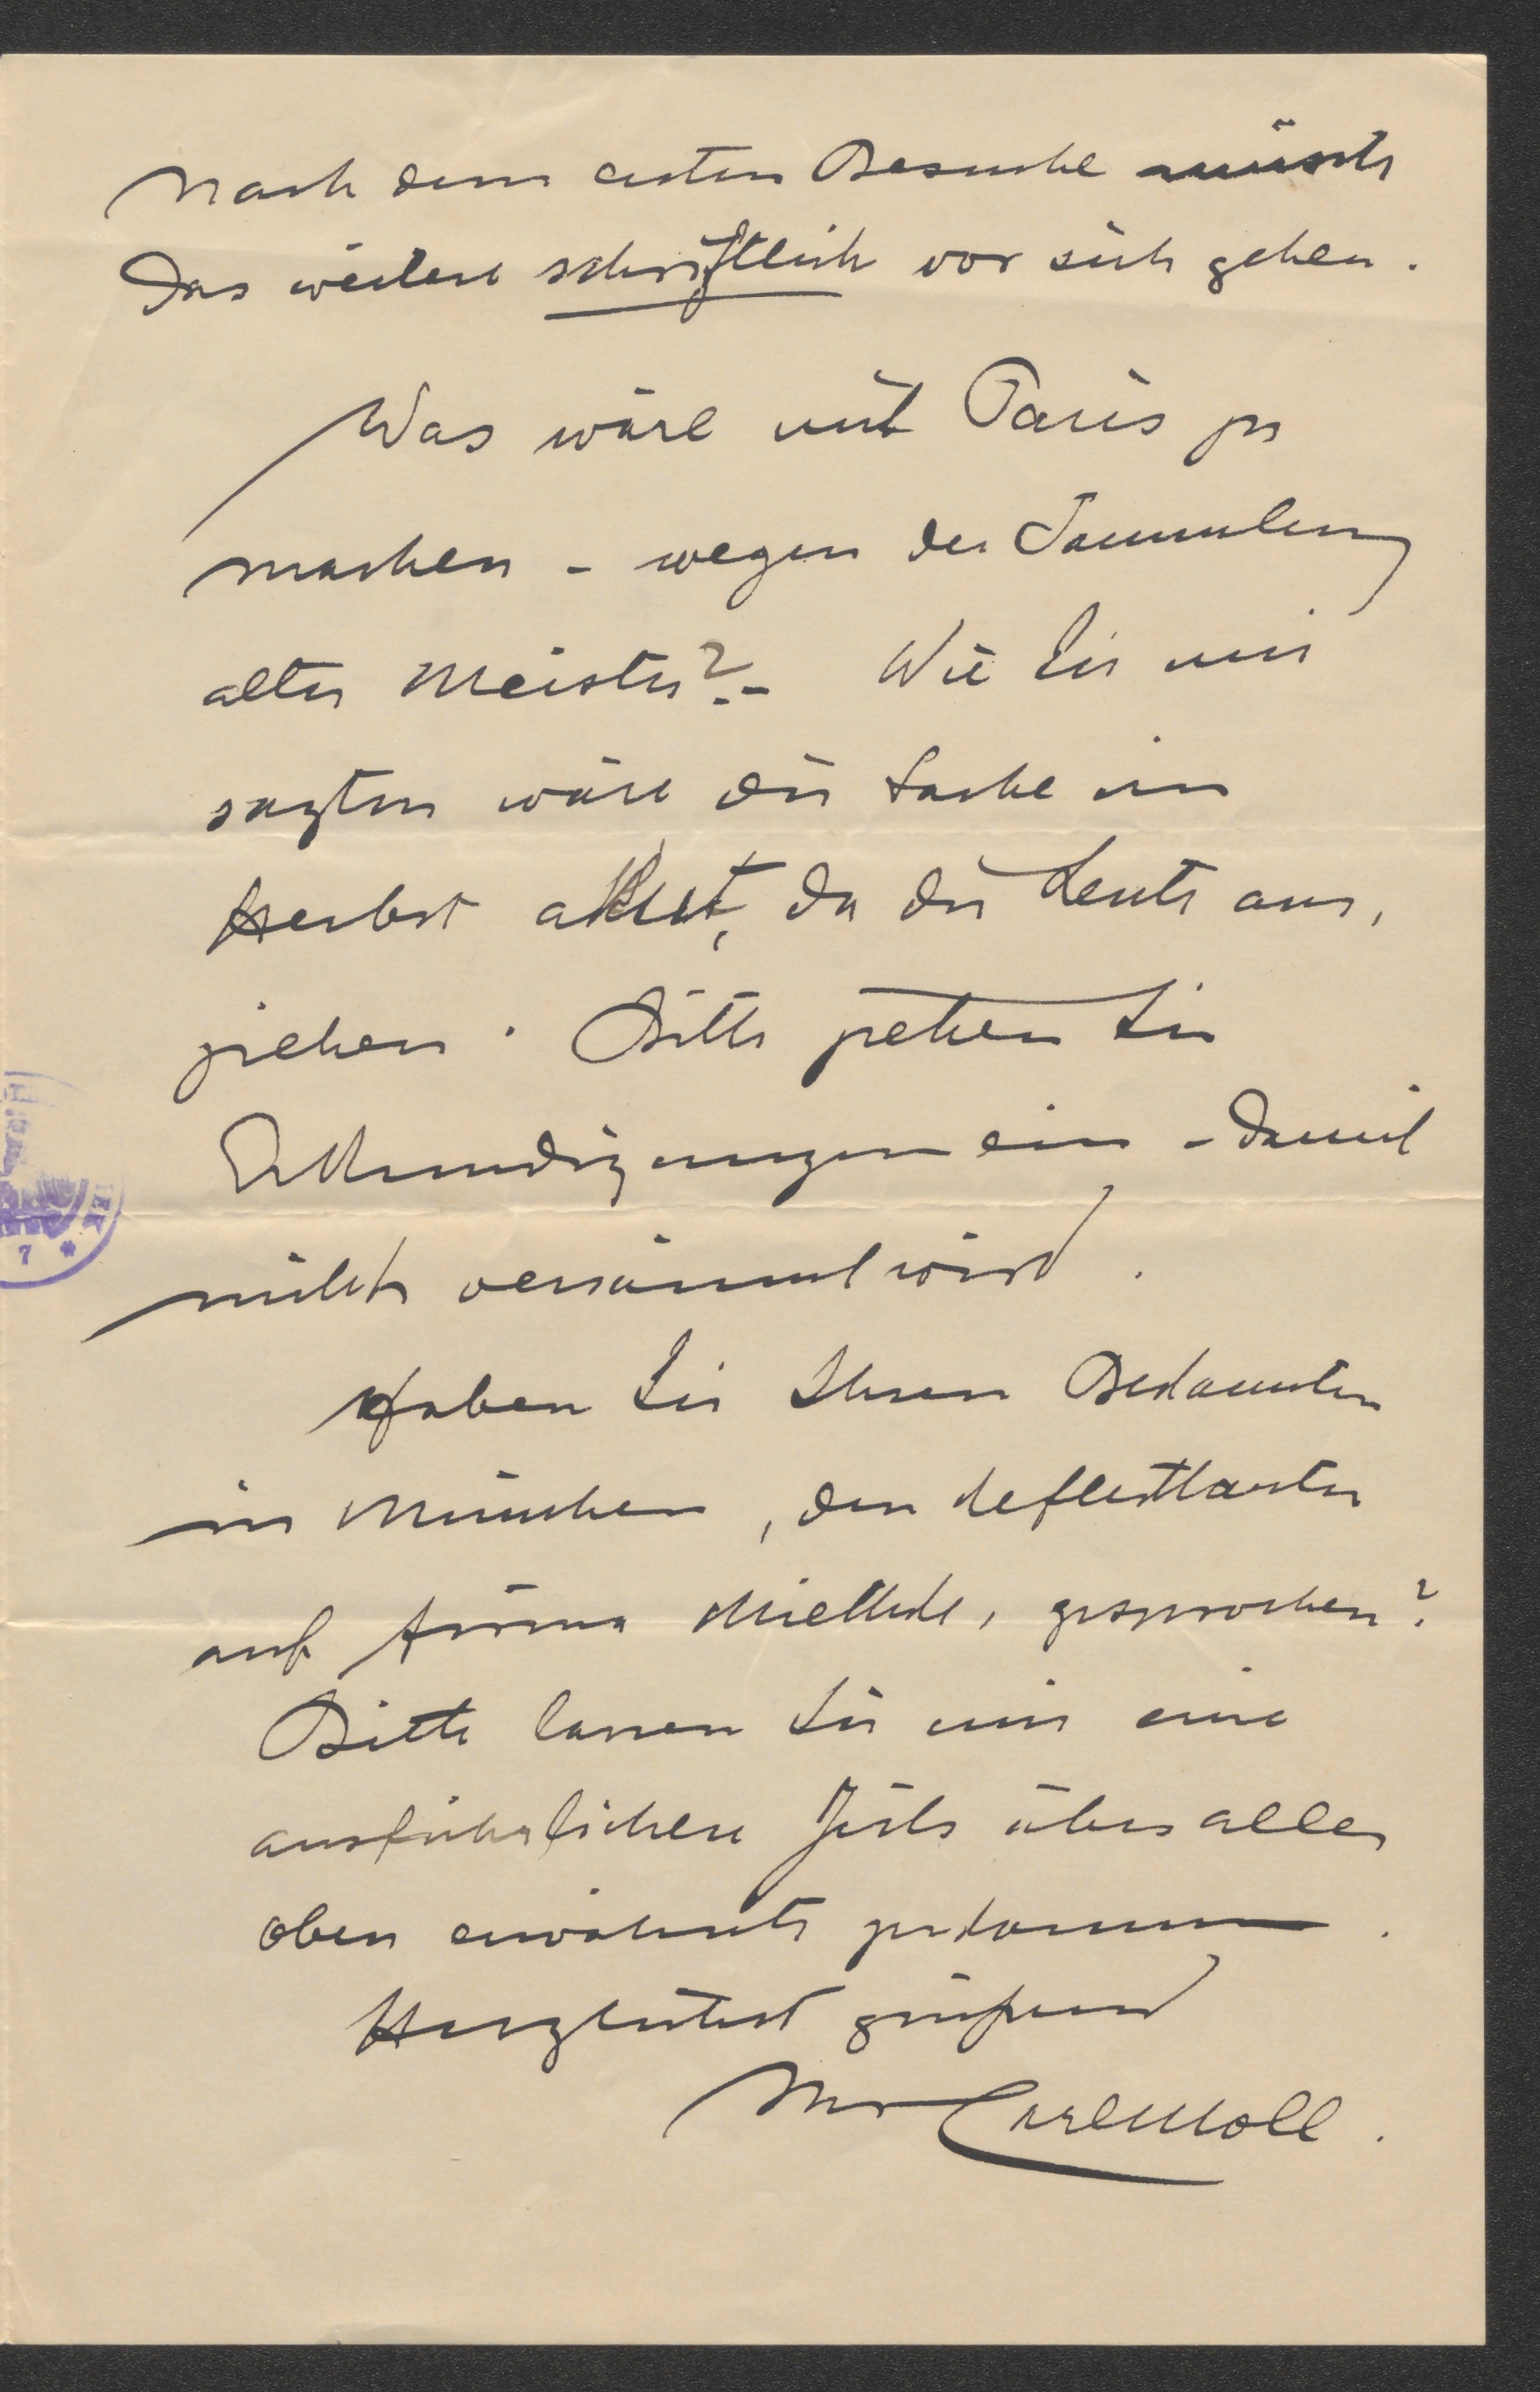 Nach dem ersten Besuche müsste
das weitere schriftlich vor sich gehen.
Was wäre mit Paris zu
machen - wegen der Sammlung
alter Meister? - Wie Sie mir
sagten wäre die Sache im
Herbst akut, da die Leute aus,
ziehen. Bitte ziehen Sie
Erkundigungen ein - damit
nichts versäumt wird.
Haben Sie Ihren Bekannten
in München, den Reflektanten
auf Firma Miethke, gesprochen?
Bitte lassen Sie mir eine
ausführlichere Zeile über alles
oben erwähnte zukommen.
Herzlichst grüßend
Ihr Carl Moll.
7 *